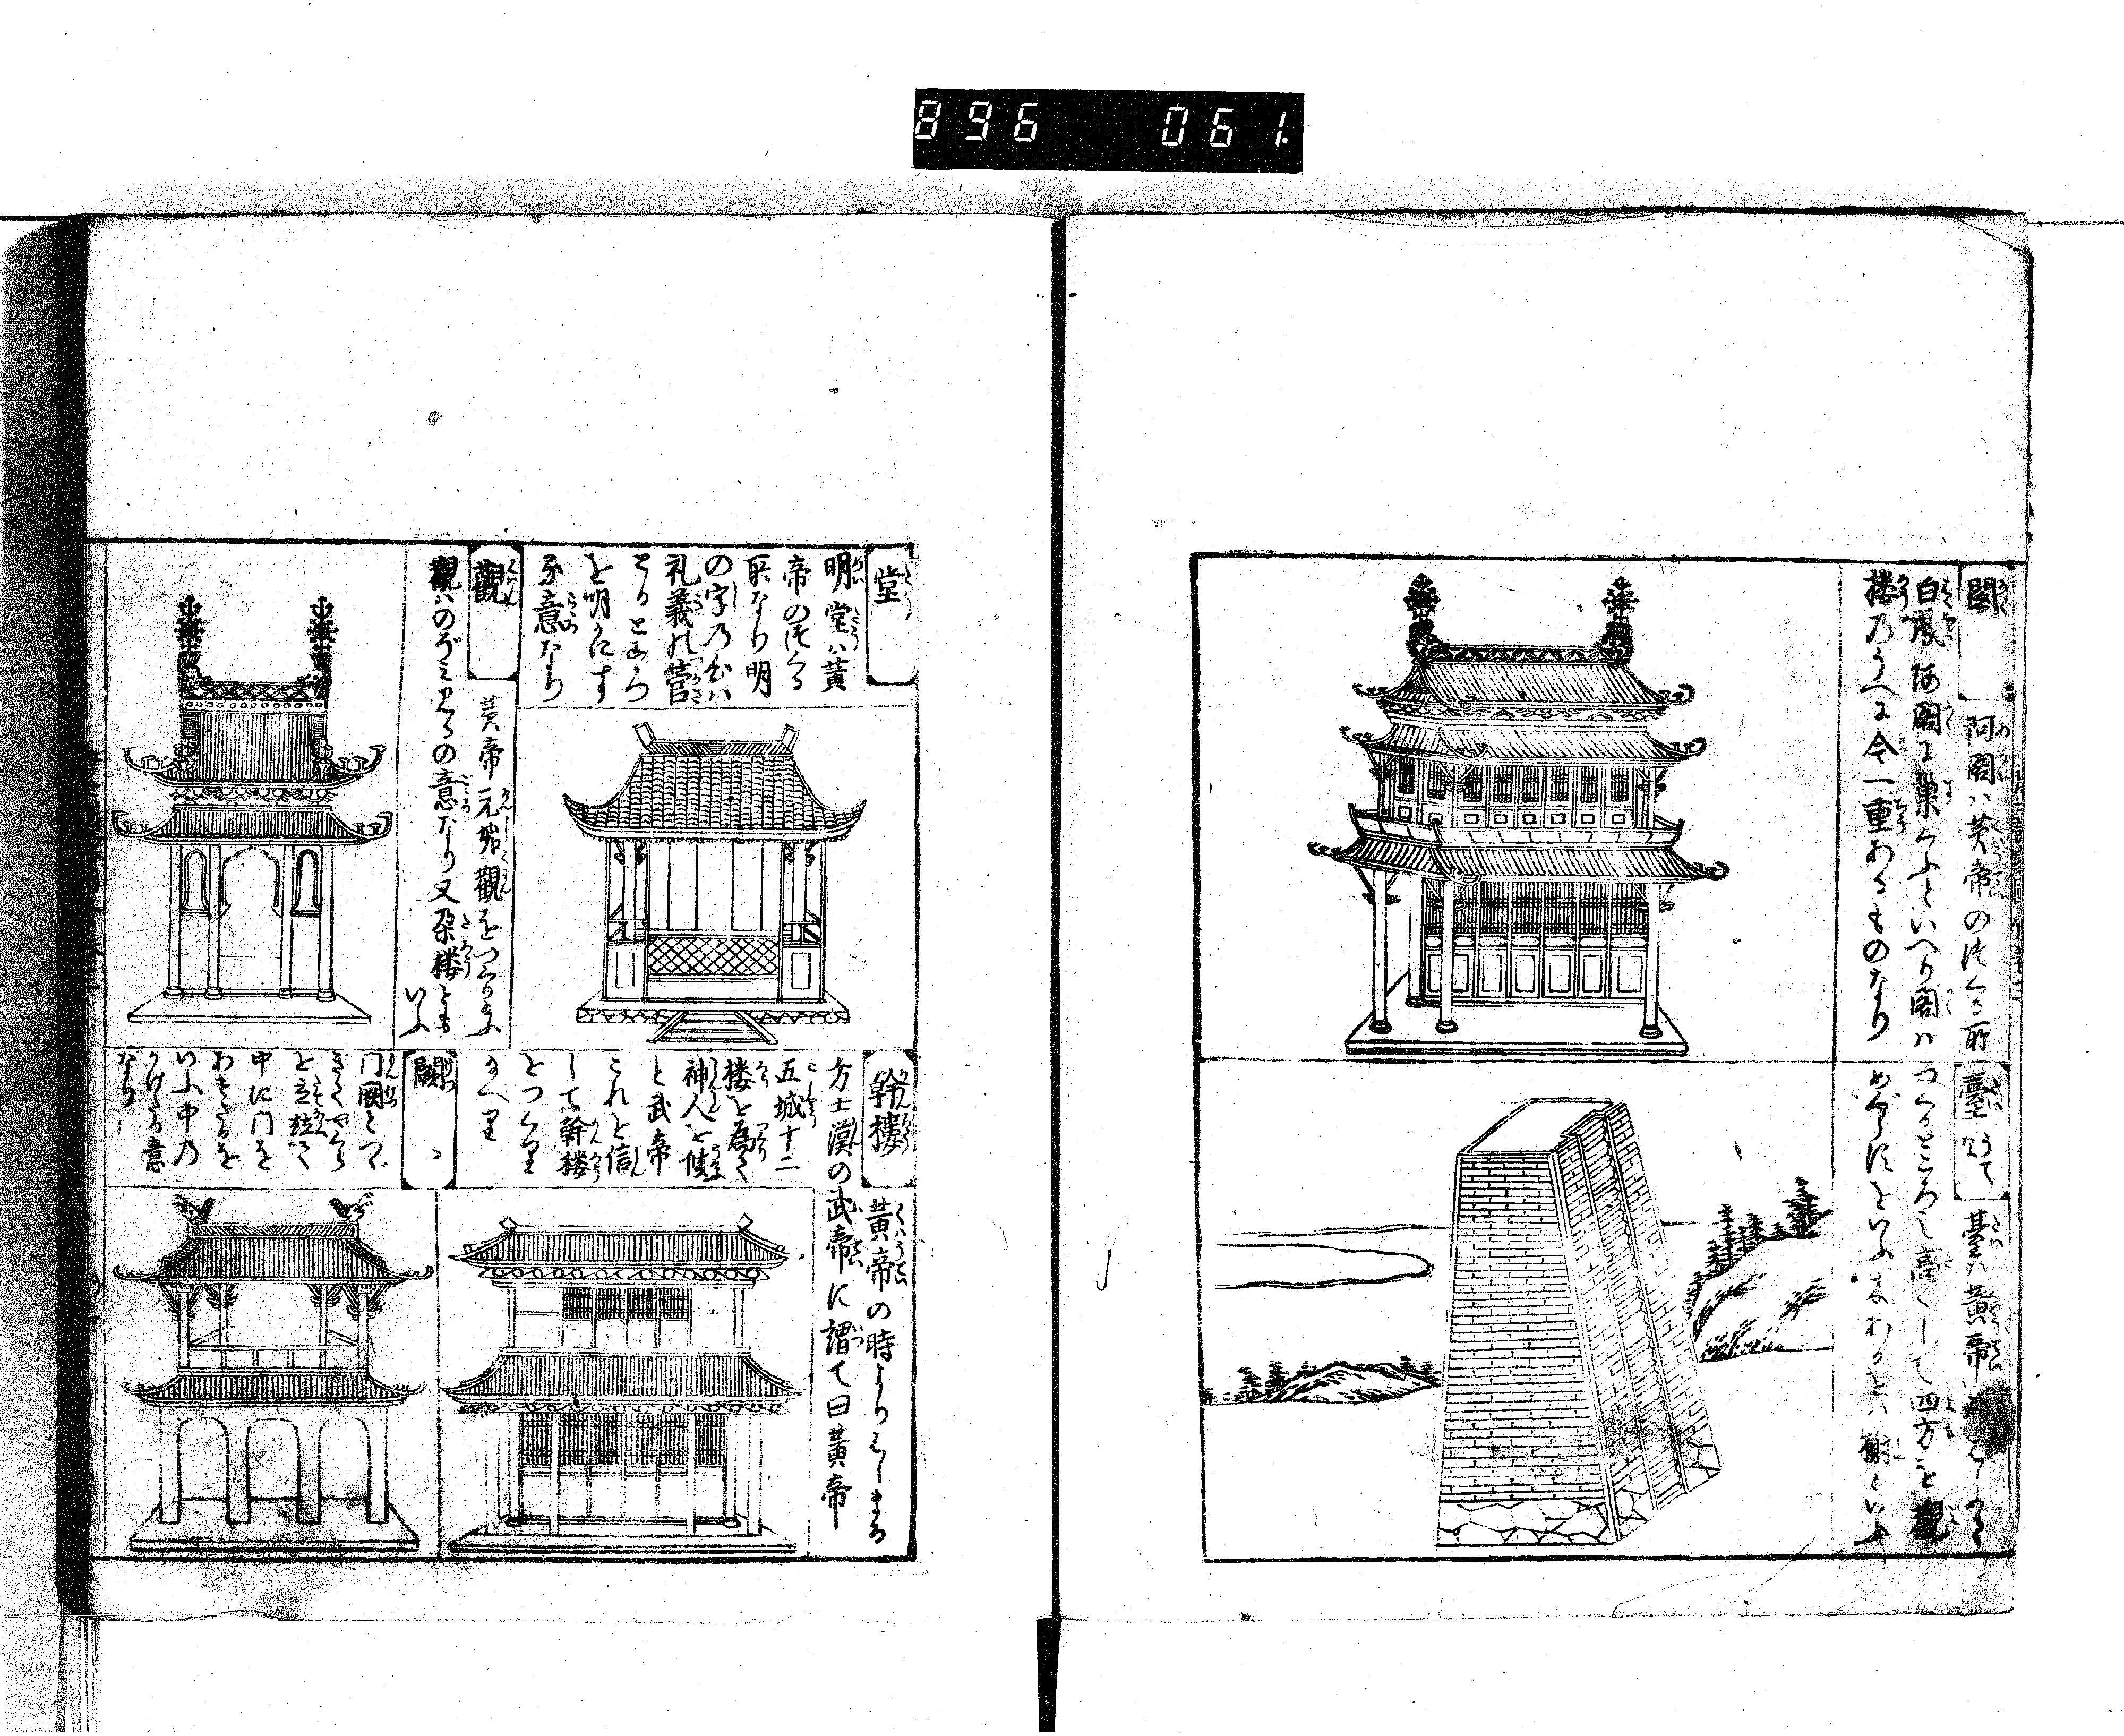 896 061
閣
阿閣ハ黄帝のつくる所
白鳳阿閣に巣くふといへり閣ハ
楼のうへに今一重あるものなり
臺 うてな
臺ハ黄帝
つくるところ也高くして四方を觀
めぐらすをいふ 榭といふ
堂
明堂ハ黄
帝のつくる
所なり明
の字の心ハ
礼義の官
を明かにす
る意なり
觀
黄帝元始觀をつくりたまふ
觀ハのぞミミるの意なり又朶楼とも
いふ
幹楼
黄帝の時よりはじまる
方士漢の武帝に謂て曰黄帝
五城十二
楼を為て
神人を候
と武帝
これを信
じて幹楼
をつくり
たまへり
闕
门闕とつゞ
きてやぐら
を立双て
中に门を
わきたるを
いふ中の
かけたる意
なり